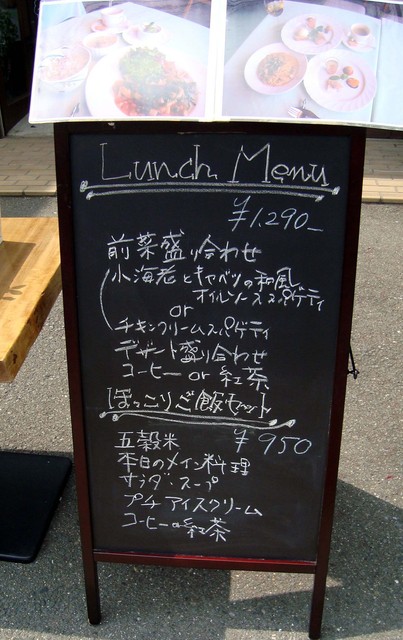 Lunch Menu
¥1,290-
前菜盛り合わせ
小海老とキャベツの和風
オイルソーススパゲティ
or
チキンクリームスパゲティ
デザート盛り合わせ
コーヒー or 紅茶
ほっこりご飯セット
¥950
五穀米
本日のメイン料理
サラダ・スープ
プチアイスクリーム
コーヒー or 紅茶